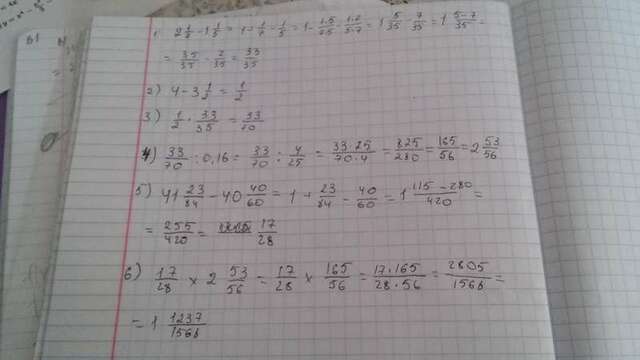 1) 2 1/7 - 1 1/5 = 1 + 1/7 - 1/5 = 1 + 1·5/7·5 - 1·7/5·7 = 1 5/35 - 7/35 = 1 5-7/35 =
= 35/35 - 2/35 = 33/35
2) 4 - 3 1/2 = 1/2
3) 1/2 · 33/35 = 33/70
4) 33/70 : 0,16 = 33/70 : 4/25 = 33·25/70·4 = 825/280 = 165/56 = 2 53/56
5) 41 23/84 - 40 40/60 = 1 + 23/84 - 40/60 = 1 115-280/420 =
= 255/420 = 17/28
6) 17/28 × 2 53/56 = 17/28 × 165/56 = 17·165/28·56 = 2805/1568 =
= 1 1237/1568